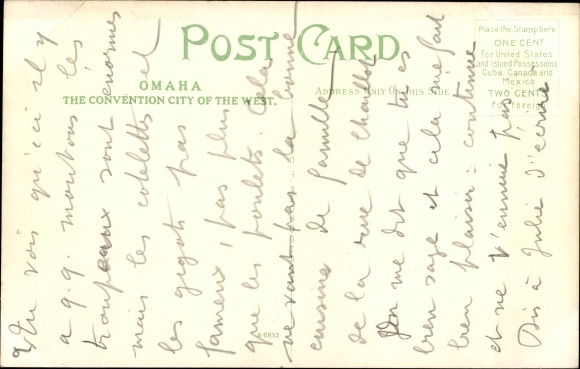 POST CARD
OMAHA
THE CONVENTION CITY OF THE WEST.
ADDRESS ONLY ON THIS SIDE
Place the Stamp here
ONE CENT
for United States
and Island Possessions
Cuba, Canada and
Mexico
TWO CENTS
for Foreign
A-6632
Tu vois qu'ici il y
a q.q. moutons les
troupeaux sont énormes
mais les cotelettes et
les gigots pas
fameux, pas plus
que les poulets. Cela
ne vaut pas la bonne
cuisine de famille
de la rue de Chaillot
On me dit que tu es
bien sage et cela me fait
bien plaisir: continue
et ne t'ennuie pas
Dis à Julie d'écrire